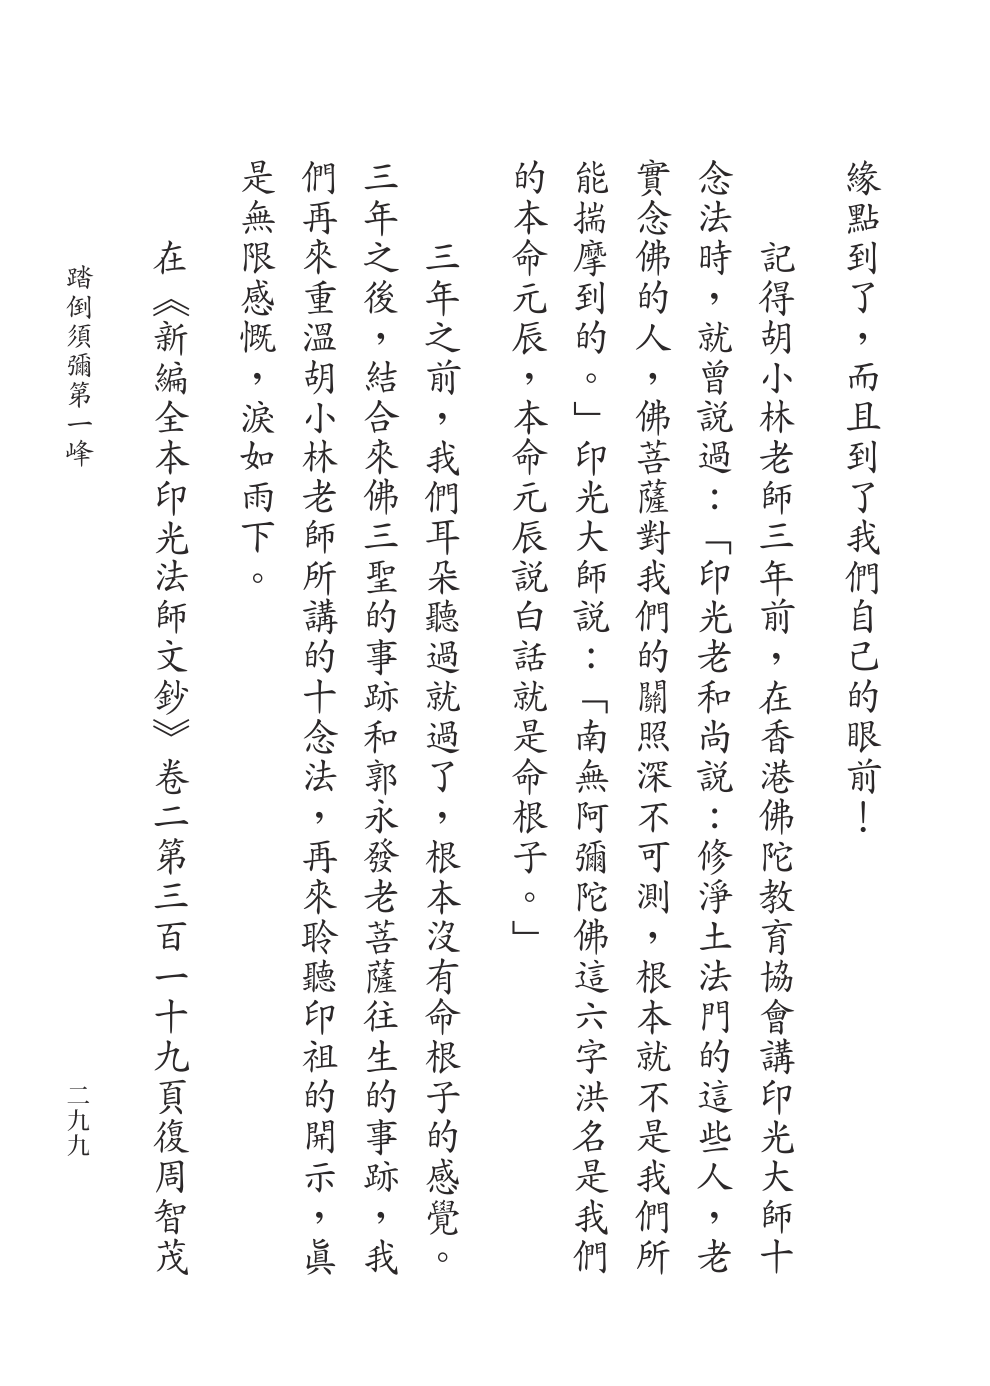 緣點到了，而且到了我們自己的眼前！
記得胡小林老師三年前，在香港佛陀教育協會講印光大師十
念法時，就曾說過：「印光老和尚說：修淨土法門的這些人，老
實念佛的人，佛菩薩對我們的關照深不可測，根本就不是我們所
能揣摩到的。」印光大師說：「南無阿彌陀佛這六字洪名是我們
的本命元辰，本命元辰說白話就是命根子。」
三年之前，我們耳朵聽過就過了，根本沒有命根子的感覺。
三年之後，結合來佛三聖的事跡和郭永發老菩薩往生的事跡，我
們再來重溫胡小林老師所講的十念法，再來聆聽印祖的開示，眞
是無限感慨，淚如雨下。
在《新編全本印光法師文鈔》卷二第三百一十九頁復周智茂
踏倒須彌第一峰
二九九